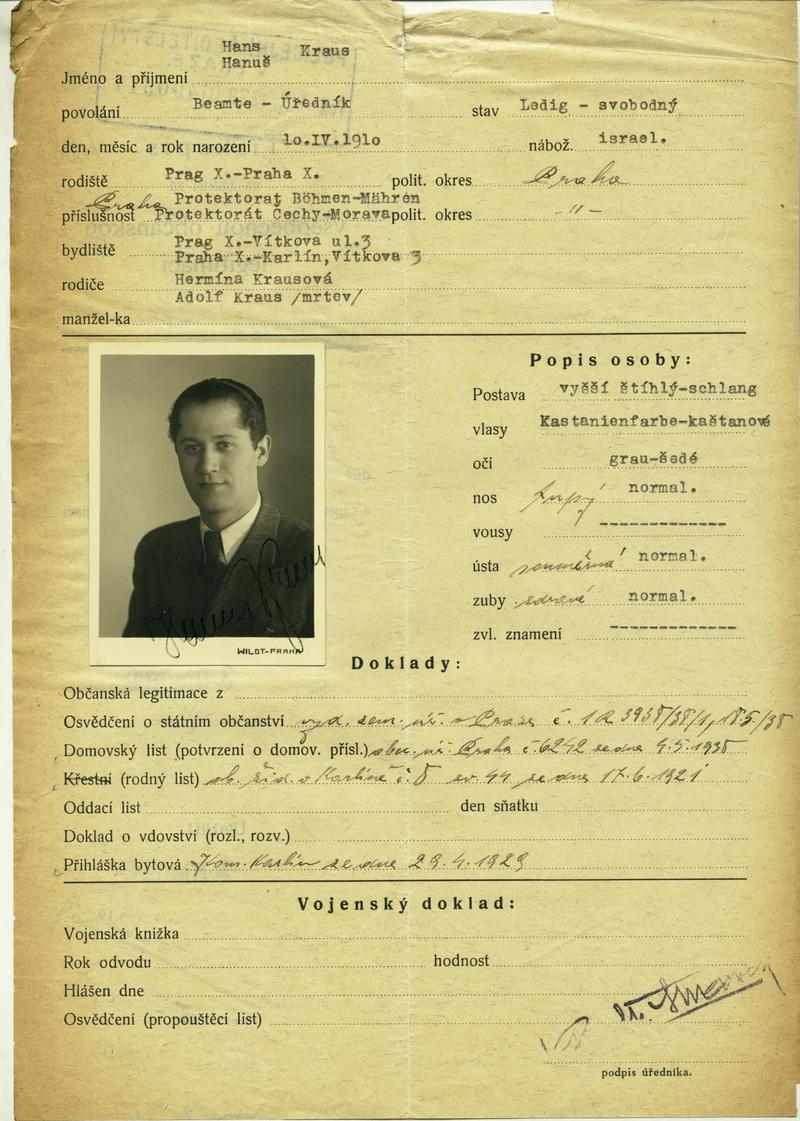 Hans Kraus
Hanuš
Jméno a příjmení
povolání Beamte - Úředník stav Ledig - svobodný
den, měsíc a rok narození 1o.IV.191o nábož. israel.
rodiště Prag X.-Praha X. polit. okres Praha
Praha Protektorat Böhmen-Mähren
příslušnost Protektorát Čechy-Morava polit. okres -"-
bydliště Prag X.-Vítkova ul.3
Praha X.-Karlín,Vítkova 3
rodiče Hermína Krausová
Adolf Kraus /mrtev/
manžel-ka
Popis osoby:
Postava vyšší štíhlý-schlang
vlasy Kastanienfarbe-kaštanové
oči grau-šedé
nos tupý normal.
vousy -------------
ústa souměrná normal.
zuby zdravé normal.
zvl. znamení -------------
Hanuš Kraus
WILDT-PRAHA
Doklady:
Občanská legitimace z
Osvědčení o státním občanství vyd. zem. úř. v Praze č. 1 R 3938/38/1, 18.5./38
Domovský list (potvrzení o domov. přísl.) obec. úř. Praha č. 6242 ze dne 9.5.1938
Křestní (rodný list) ob. žid. v Karlíně č. 8 ev. 44 ze dne 17.6.1921
Oddací list den sňatku
Doklad o vdovství (rozl., rozv.)
Přihláška bytová Kom. Karlín ze dne 29.4.1929
Vojenský doklad:
Vojenská knížka
Rok odvodu hodnost
Hlášen dne
Osvědčení (propouštěcí list)
podpis úředníka.